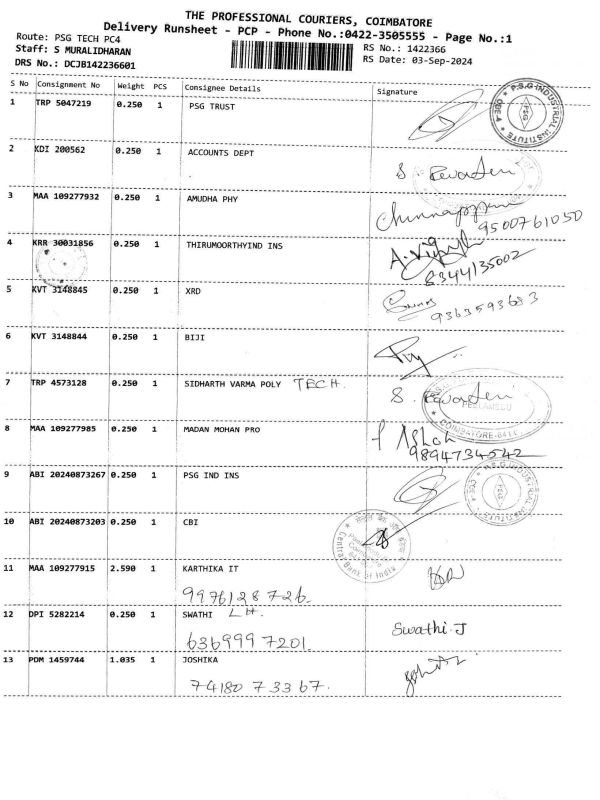 THE PROFESSIONAL COURIERS, COIMBATORE
Delivery Runsheet - PCP - Phone No.:0422-3505555 - Page No.:1
Route: PSG TECH PC4 RS No.: 1422366
Staff: S MURALIDHARAN RS Date: 03-Sep-2024
DRS No.: DCJB142236601
S No Consignment No Weight PCS Consignee Details Signature
1 TRP 5047219 0.250 1 PSG TRUST
P.S.G INDUSTRIAL INSTITUTE PSG CBE-4
2 KDI 200562 0.250 1 ACCOUNTS DEPT
3 MAA 109277932 0.250 1 AMUDHA PHY
9500761050
4 KRR 30031856 0.250 1 THIRUMOORTHYIND INS
8344135002
5 KVT 3148845 0.250 1 XRD
9363593683
6 KVT 3148844 0.250 1 BIJI
7 TRP 4573128 0.250 1 SIDHARTH VARMA POLY TECH.
8 MAA 109277985 0.250 1 MADAN MOHAN PRO
9894734542
9 ABI 20240873267 0.250 1 PSG IND INS
P.S.G INDUSTRIAL INSTITUTE PSG CBE-4
10 ABI 20240873203 0.250 1 CBI
Central Bank of India
11 MAA 109277915 2.590 1 KARTHIKA IT
9976128726
12 DPI 5282214 0.250 1 SWATHI LH. Swathi.J
6369997201
13 PDM 1459744 1.035 1 JOSHIKA
7418073367